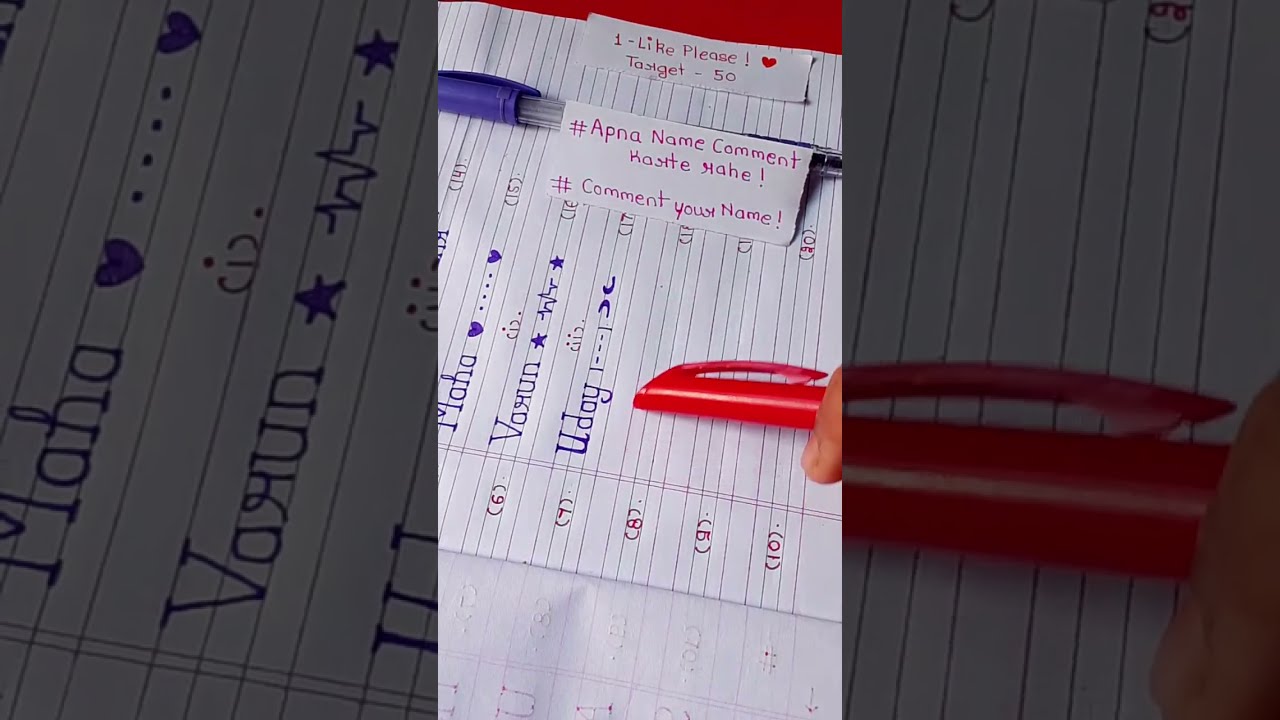 1-Like Please! ♥
Target - 50
#Apna Name Comment
Karte rahe!
# Comment your Name!
(14).
(15).
(20).
Maha ♥ ····· ♥
Varun ★ ★
Uday
(6).
(7).
(8).
(9).
(10).